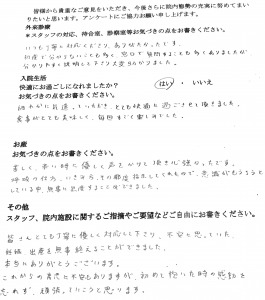 皆様から貴重なご意見をいただき、今後さらに院内態勢の充実に努めてまい
りたいと思います。アンケートにご協力お願い申し上げます。
外来診療
*スタッフの対応、待合室、診察室等お気づきの点をお書きください。
いつも丁寧に対応くださり、ありがたかったです。
初産で分からないことも多く、
分かりやすく説明して下さり
入院生活
快適にお過ごしになれましたか? はい ・ いいえ
お気づきの点をお書きください。
とても快適に過ごさせて頂きました。
食事がとても美味しく、毎回すごく楽しみでした。
お産
お気づきの点をお書きください。
苦しく、辛い時に優しく声をかけて頂き心強かったです。
呼吸の仕方、いきみ方、その都度指示してくれたので、
している中、無事に出産することができました。
その他
スタッフ、院内施設に関するご指摘やご要望などご自由にお書きください。
皆さんとても丁寧に優しく対応して下さり、不安と思っていた
妊娠、出産を無事終えることができました。
本当にありがとうございます。
これからの育児に不安もありますが、初めて抱いた時の感動を
忘れず、頑張っていこうと思います。